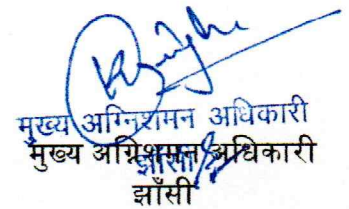 मुख्य अग्निशमन अधिकारी
मुख्य अग्निशमन अधिकारी
झाँसी
झाँसी